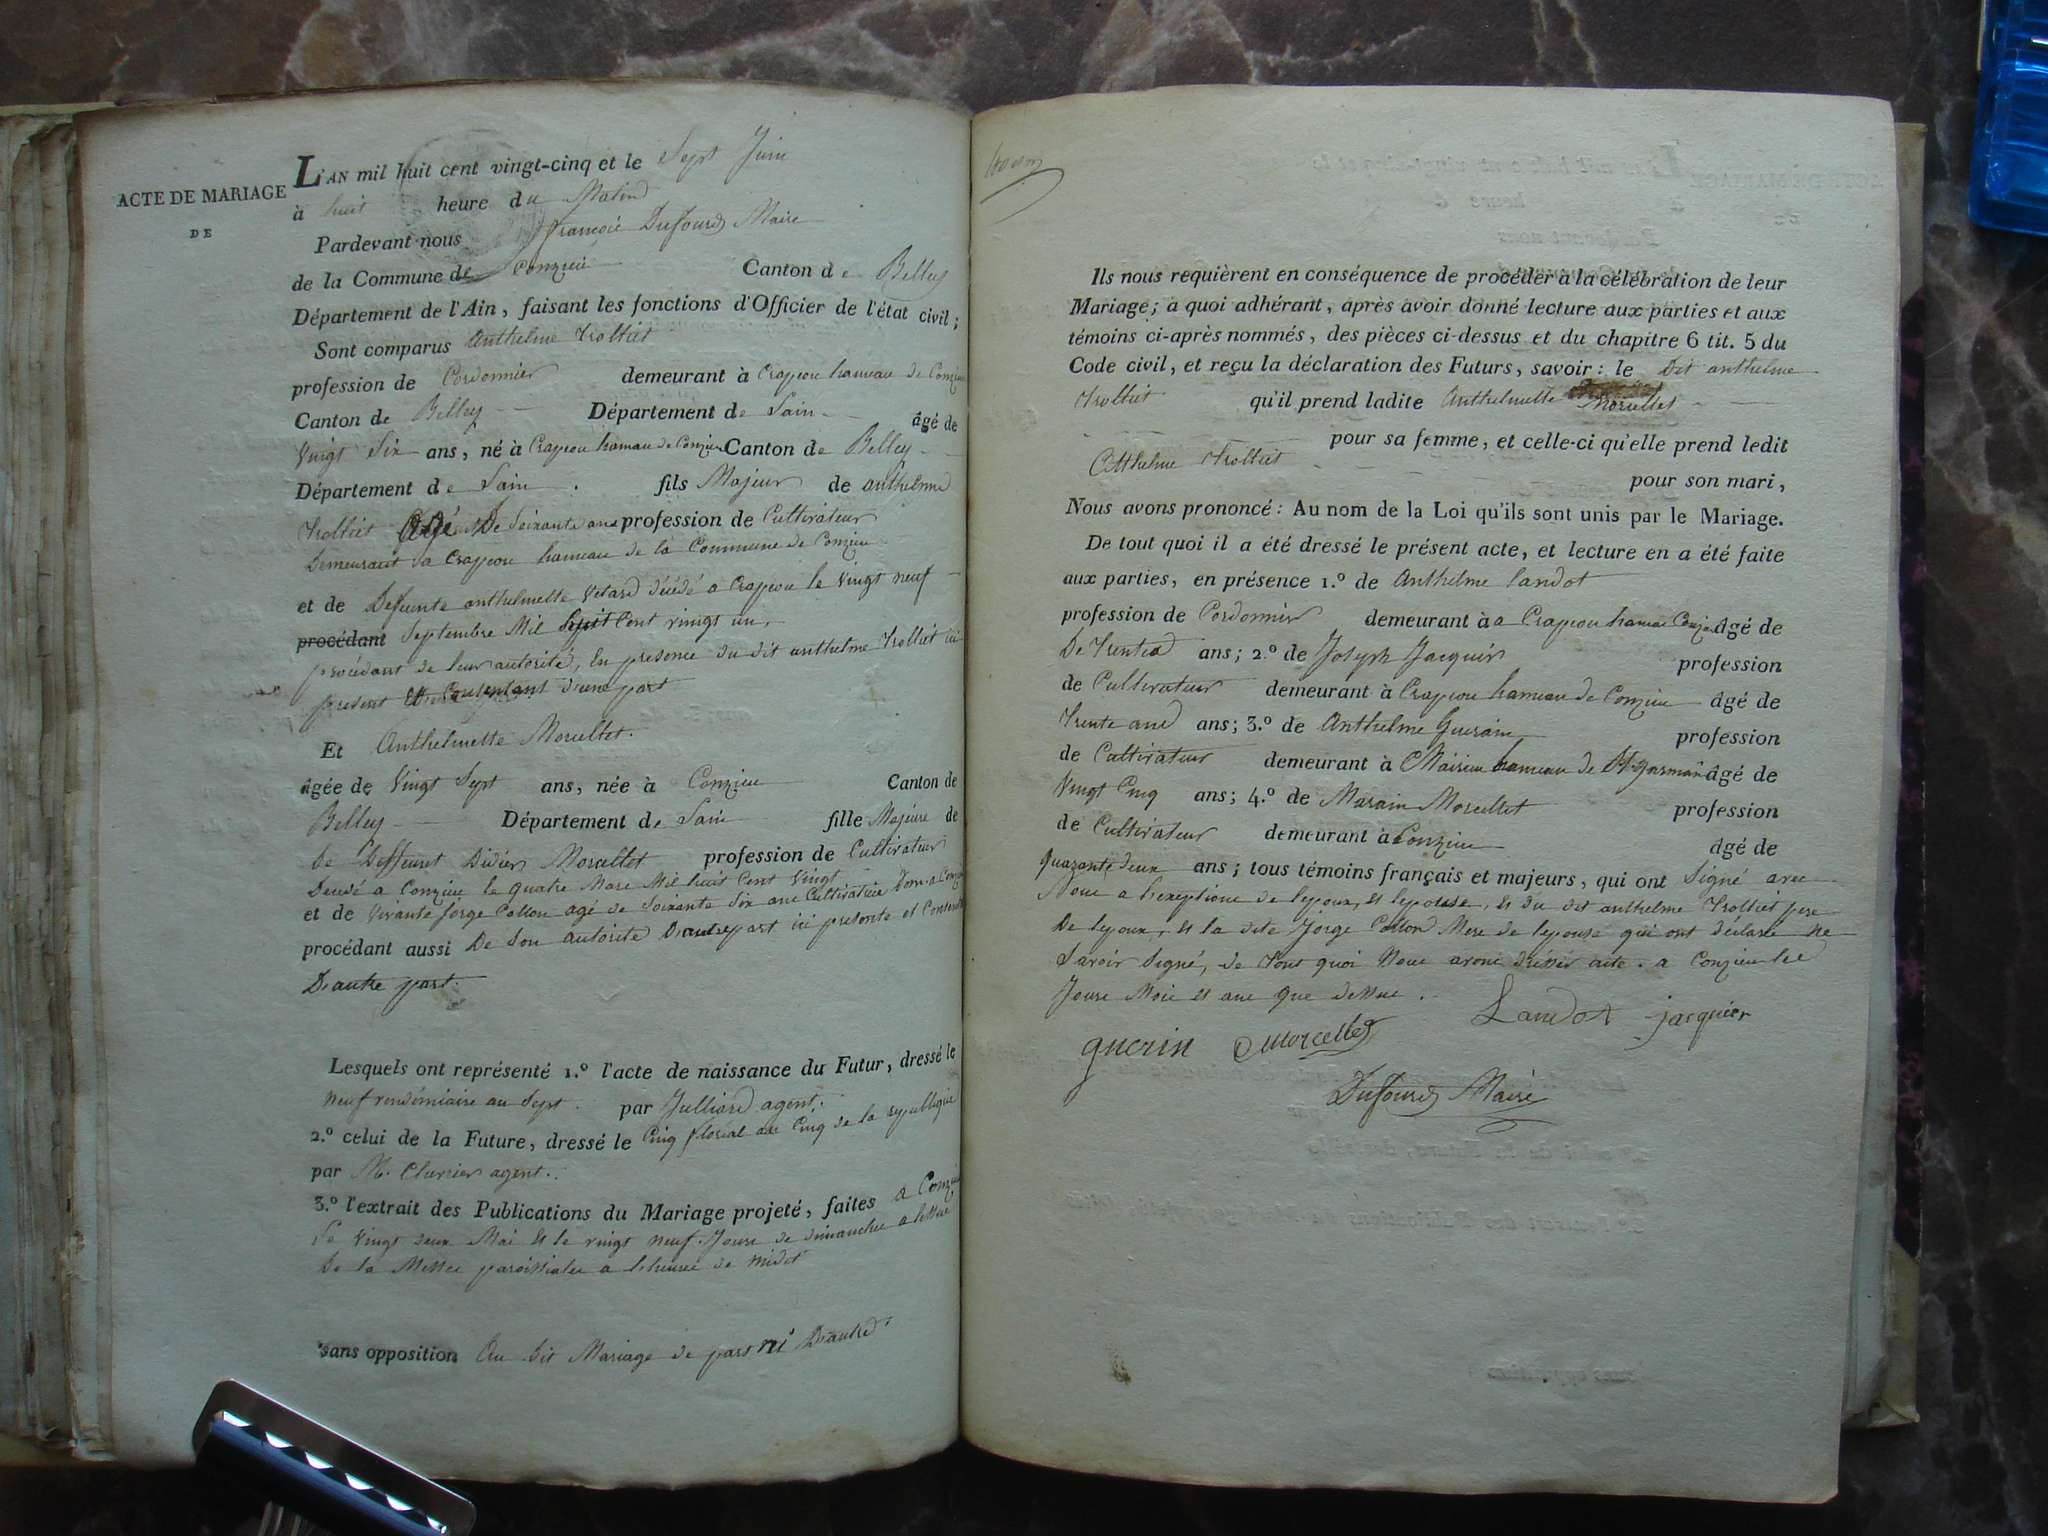 ACTE DE MARIAGE
DE
L'AN mil huit cent vingt-cinq et le Sept Juin
à huit heure du Matin
Pardevant nous François Dufourd Maire
de la Commune de Conzieu Canton de Belley
Département de l'Ain, faisant les fonctions d'Officier de l'état civil;
Sont comparus Anthelme Trolliet
profession de Cordonnier demeurant à Crapeou hameau de Conzieu
Canton de Belley Département de Lain âgé de
Vingt Six ans, né à Crapeou hameau de Conzieu Canton de Belley
Département de Lain fils Majeur de anthelme
Trolliet De Soixante ans profession de Cultivateur
Demeurant a Crapeou hameau de la Commune de Conzieu
et de Defeunte anthelmette Vetard décédé a Crapeou le Vingt neuf
procédant Septembre Mil Cent vingt un,
procédant de leur autorité, En presence du dit anthelme Trolliet ici
present et Consentant d'une part
Et Anthelmette Morcellet.
âgée de Vingt Sept ans, née à Conzieu Canton de
Belley Département de Lain fille Majeure de
de Deffeunt Didier Morcellet profession de Cultivateur
Décédé a Conzieu le quatre Mars Mil huit Cent Vingt
et de Vivante Jorge Collon agé de Soixante Six ans Cultivatrice Dom. a Conzieu
procédant aussi De Son autorité D'autre part ici presente et Consentante
D'autre part.
Lesquels ont représenté 1.º l'acte de naissance du Futur, dressé le
Neuf vendémiaire an Sept. par Julliard agent.
2.º celui de la Future, dressé le Cinq floréal an Cinq de la republique
par M. Cherrier agent.
3.º l'extrait des Publications du Mariage projeté, faites a Conzieu
Le Vingt deux Mai et le vingt neuf Jours de dimanche a lissue
De la Messe paroissialle a lheure de midit
sans opposition Au dit Mariage de part ni D'autre
Ils nous requièrent en conséquence de procéder à la célébration de leur
Mariage; à quoi adhérant, après avoir donné lecture aux parties et aux
témoins ci-après nommés, des pièces ci-dessus et du chapitre 6 tit. 5 du
Code civil, et reçu la déclaration des Futurs, savoir: le Dit anthelme
Trolliet qu'il prend ladite Anthelmette Morcellet
pour sa femme, et celle-ci qu'elle prend ledit
Anthelme Trolliet
pour son mari,
Nous avons prononcé: Au nom de la Loi qu'ils sont unis par le Mariage.
De tout quoi il a été dressé le présent acte, et lecture en a été faite
aux parties, en présence 1.º de Anthelme Landot
profession de Cordonnier demeurant à a Crapeou hameau Conzieu âgé de
De Trente ans; 2.º de Joseph Jacquier profession
de Cultivateur demeurant à Crapeou hameau de Conzieu âgé de
Trente ans ans; 3.º de Anthelme Guerain profession
de Cultivateur demeurant à hameau de St. germain âgé de
Vingt Cinq ans; 4.º de Marain Morcellet profession
de Cultivateur demeurant à Conzieu âgé de
quarante deux ans; tous témoins français et majeurs, qui ont Signé avec
Nous a lexeptione de lepoux, et lepouse, et du dit anthelme Trolliet pere
De lepoux, et la dite Jorge Collon Mere de lepouse qui ont déclaré ne
Savoir Signé, de tout quoi Nous avons dresser acte. a Conzieu les
Jours Mois et ans que dessus.
Landot jacquier
guerin Morcellet
Dufourd Maire